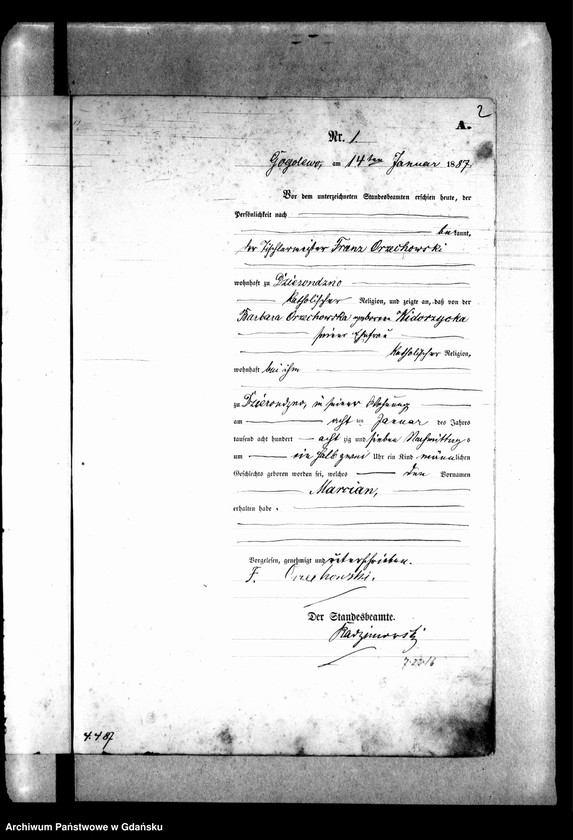 2
A.
Nr. 1.
Gogolewo, am 14ten Januar 1887.
Vor dem unterzeichneten Standesbeamten erschien heute, der
Persönlichkeit nach
bekannt,
der Tischlermeister Franz Orzechowski
wohnhaft zu Dzierondzno
katholischer Religion, und zeigte an, daß von der
Barbara Orzechowska geborenen
seiner Ehefrau
katholischer Religion,
wohnhaft bei ihm
zu Dzierondzno, in seiner Wohnung
am acht ten Januar des Jahres
tausend acht hundert acht zig und sieben Nachmittags
um ein halb zwei Uhr ein Kind männlichen
Geschlechts geboren worden sei, welches den Vornamen
Marcian,
erhalten habe.
Vorgelesen, genehmigt und unterschrieben.
F. Orzechowski.
Der Standesbeamte.
4.4.87
Archiwum Państwowe w Gdańsku